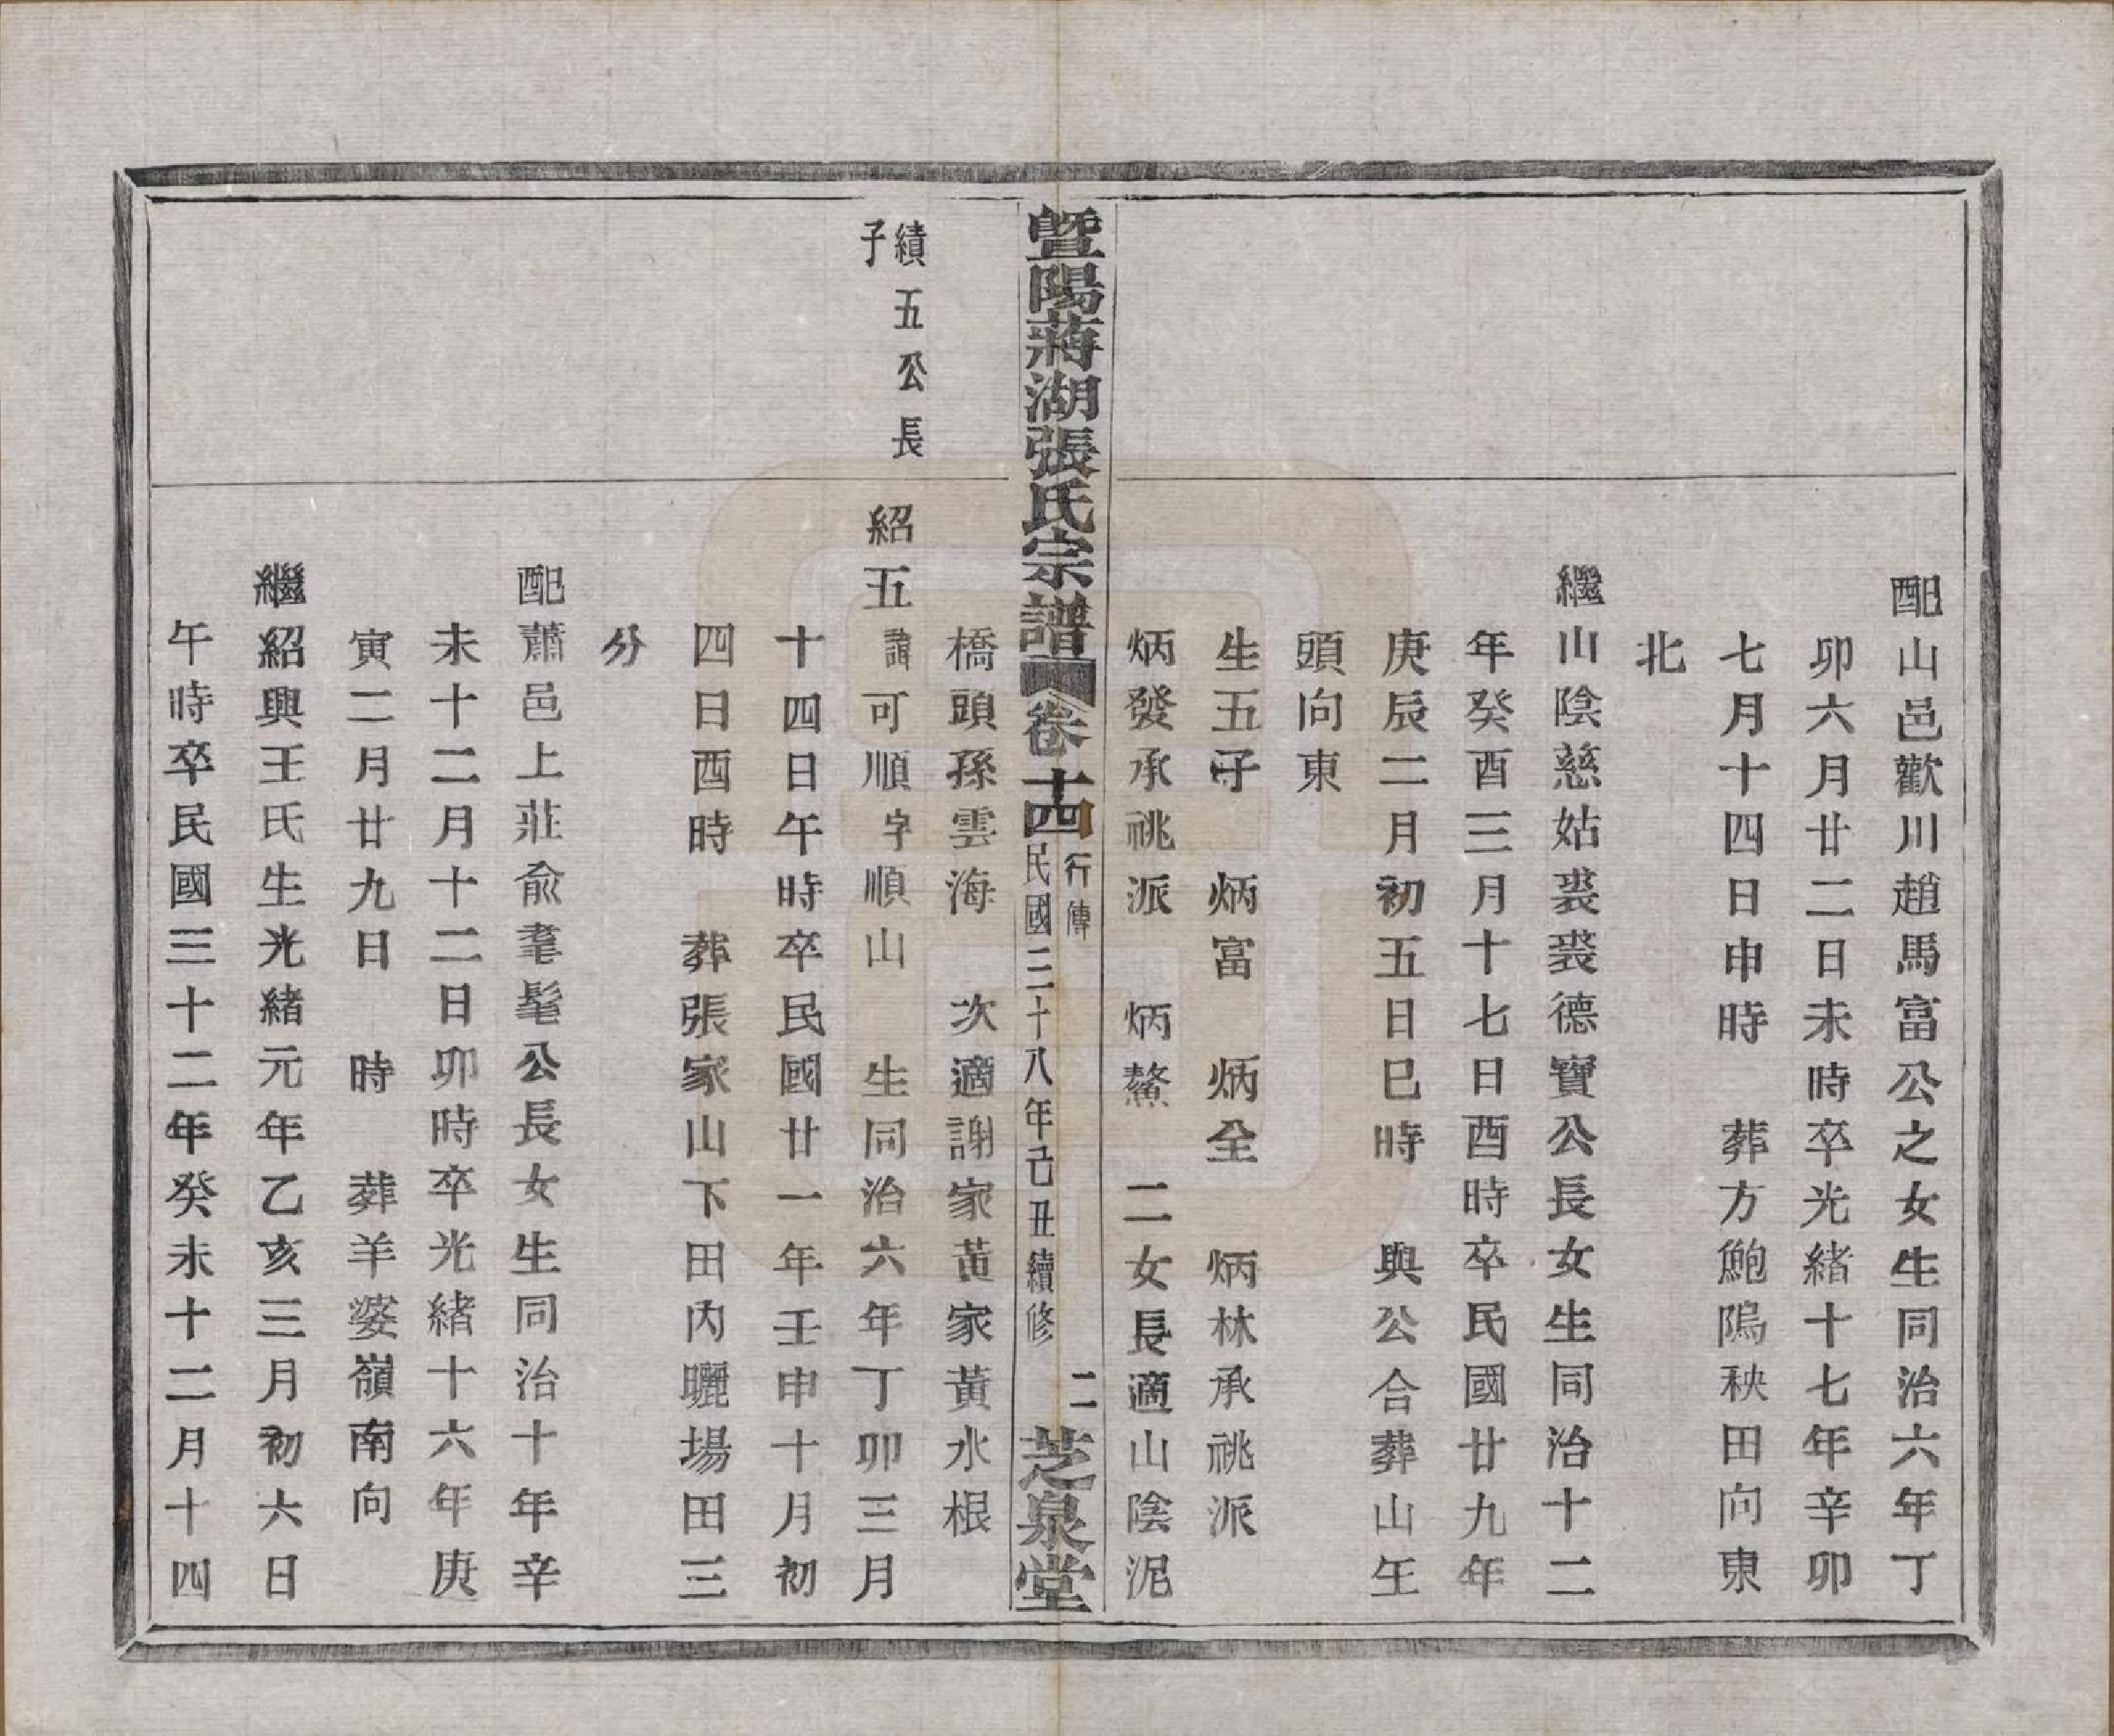 配山邑歡川趙馬富公之女生同治六年丁
卯六月廿二日未時卒光緒十七年辛卯
七月十四日申時　葬方鮑隖秧田向東
北
繼山陰慈姑裘裘德寶公長女生同治十二
年癸酉三月十七日酉時卒民國廿九年
庚辰二月初五日巳時　與公合葬山玍
頭向東
生五子　炳富　炳全　炳林承祧派
炳發承祧派　炳鰲　二女長適山陰泥
暨陽蔣湖張氏宗譜　卷十四　行傳　民國三十八年己丑續修　二　芝泉堂
橋頭孫雲海　次適謝家黃家黃水根
績五公長子
紹五諱可順字順山　生同治六年丁卯三月
十四日午時卒民國廿一年壬申十月初
四日酉時　葬張家山下田內曬場田三
分
配蕭邑上莊俞耄髦公長女生同治十年辛
未十二月十二日卯時卒光緒十六年庚
寅二月廿九日　時　葬羊婆嶺南向
繼紹興王氏生光緒元年乙亥三月初六日
午時卒民國三十二年癸未十二月十四